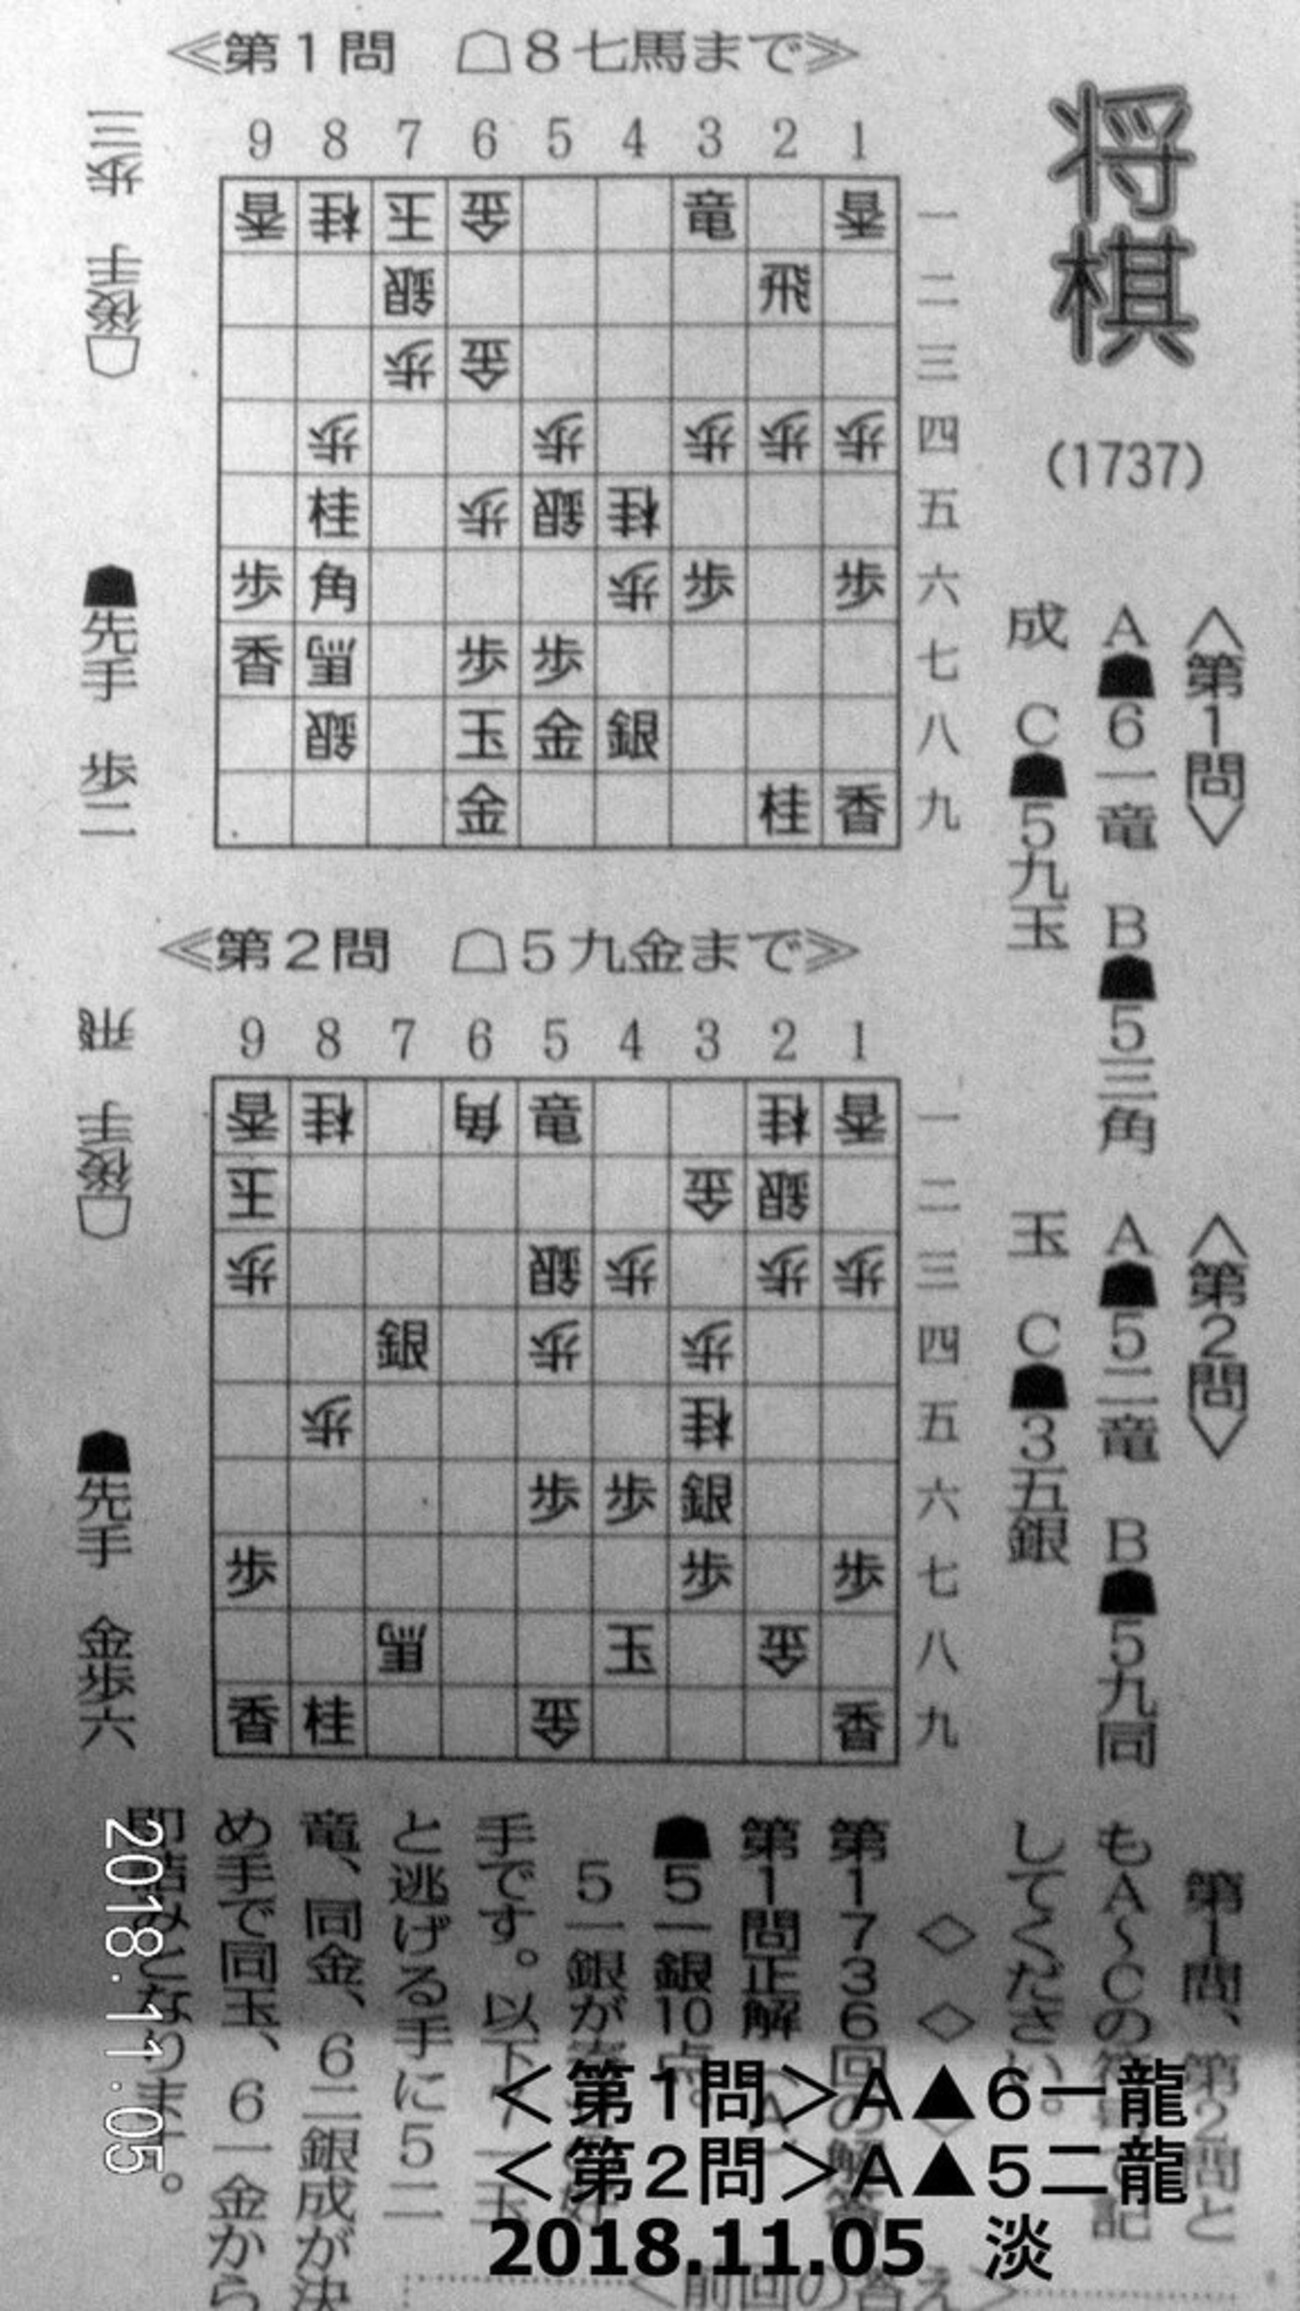 将棋
(1737)
〈第1問〉
A☗6一竜 B☗5三角
成 C☗5九玉
〈第2問〉
A☗5二竜 B☗5九同
玉 C☗3五銀
≪第1問 ☖8七馬まで≫
9 8 7 6 5 4 3 2 1
香 桂 王 金 竜 香 一
銀 飛 二
歩 金 三
歩 歩 歩 歩 歩 四
桂 歩 銀 桂 五
歩 角 歩 歩 歩 六
香 馬 歩 歩 七
銀 玉 金 銀 八
金 桂 香 九
☖後手 歩三
☗先手 歩二
≪第2問 ☖5九金まで≫
9 8 7 6 5 4 3 2 1
香 桂 角 竜 桂 香 一
王 金 銀 二
歩 銀 歩 歩 歩 三
銀 歩 歩 四
歩 桂 五
歩 歩 銀 六
歩 歩 歩 七
馬 玉 金 八
香 桂 金 九
☖後手 飛
☗先手 金歩六
第1問、第2問と
もA〜Cの
してください。
◇ ◇
第1736回の解答
第1問正解
☗5一銀10点。
5一銀が
手です。以下7一玉
と逃げる手に5二
竜、同金、6二銀成が決
め手で同玉、6一金から
即詰みとなります。
＜前回の答え＞
2018.11.05
＜第1問＞A▲6一龍
＜第2問＞A▲5二龍
2018.11.05 淡